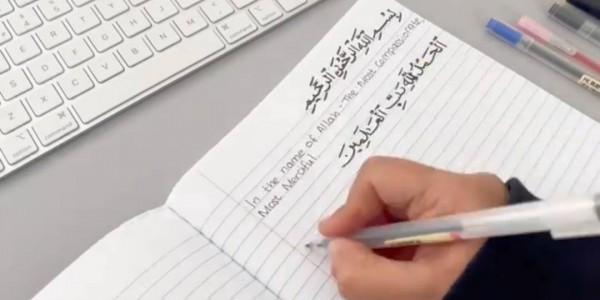 بِسْمِ اللهِ الرَّحْمٰنِ الرَّحِيمِ
In the name of Allah - The Most Compassionate,
Most Merciful
الْحَمْدُ لِلّٰهِ رَبِّ الْعَالَمِينَ